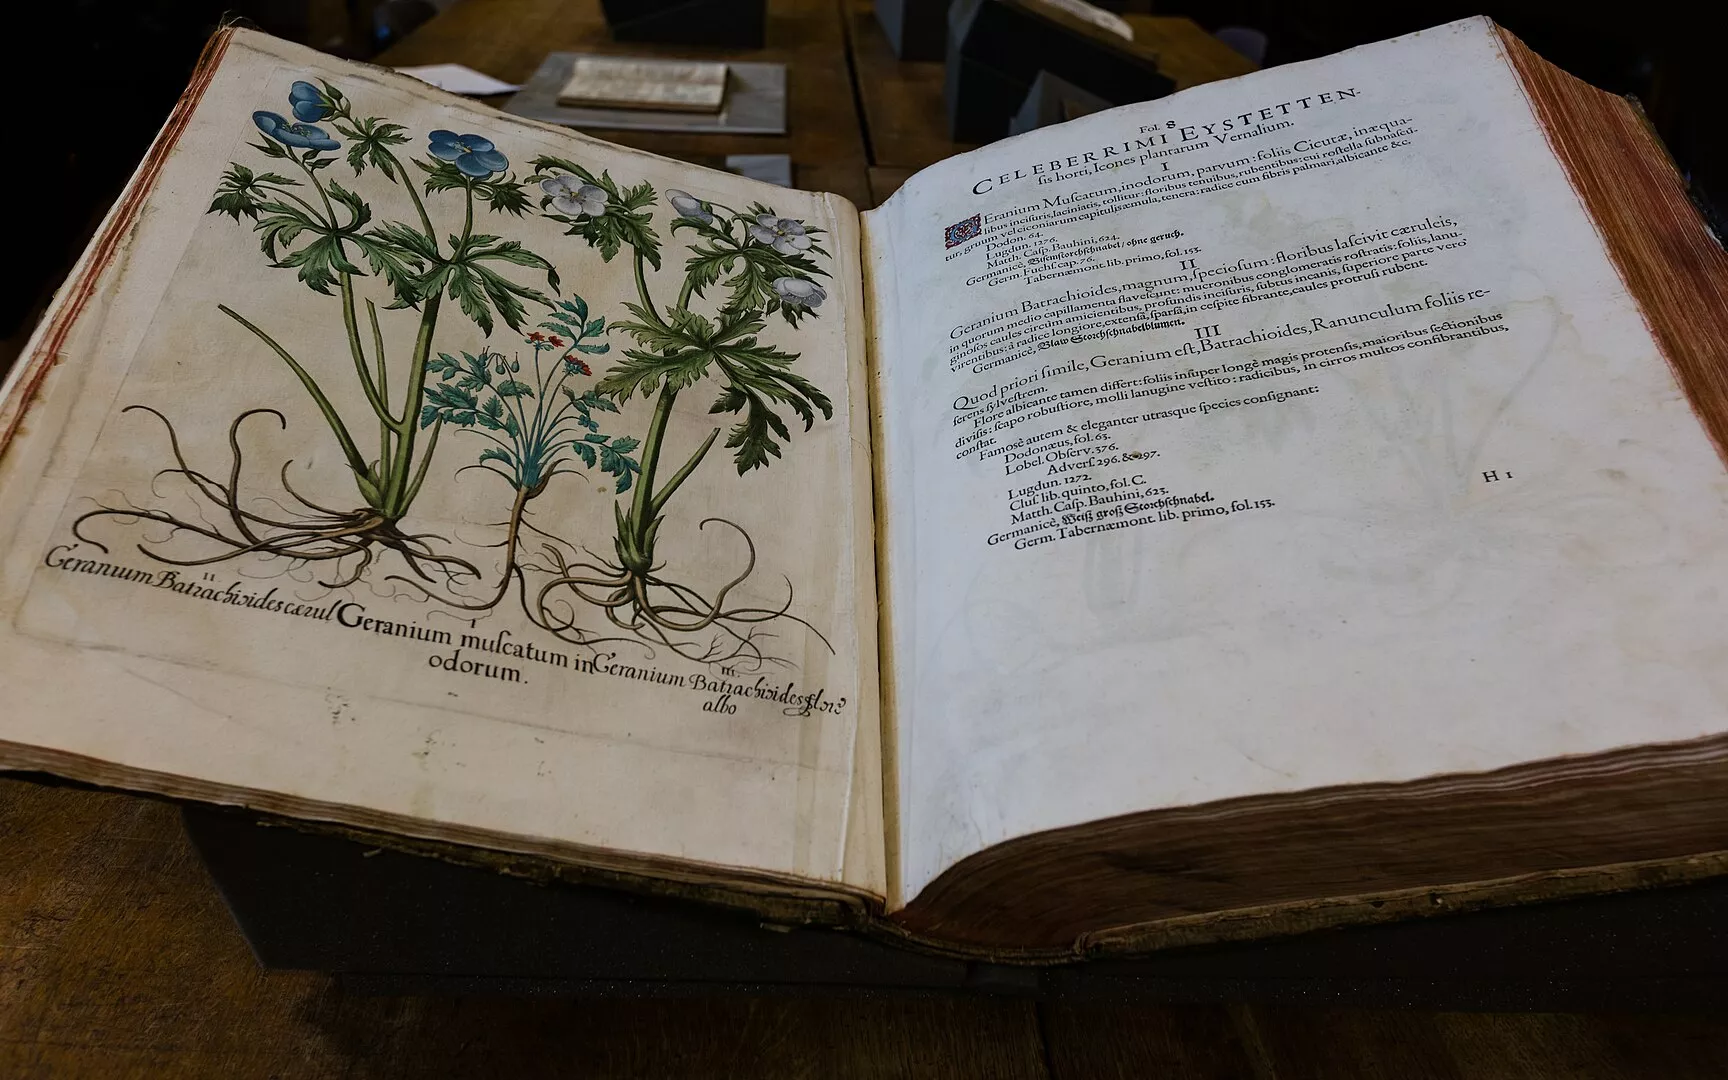 II
Geranium Batrachioides cærul
I
Geranium muſcatum in
odorum.
III.
Geranium Batrachioides flore
albo
Fol. 8
CELEBERRIMI EYSTETTEN-
ſis horti, Icones plantarum Vernalium.
I
GEranium Muſcatum, inodorum, parvum: foliis Cicutæ, inæqua-
libus inciſuris, laciniatis, tollitur: floribus tenuibus, rubentibus: cui roſtella ſubnaſcũ.
tur, gruum vel ciconiarum capitulis æmula, tenera: radice cum fibris palmari, albicante &c.
Dodon. 64.
Lugdun. 1276.
Matth. Caſp. Bauhini, 624.
Germanicè, Biſemſtorchſchnabel / ohne geruch.
Germ. Fuchſ. cap. 76.
Tabernæmont. lib. primo, fol. 153.
II
Geranium Batrachioides, magnum, ſpecioſum: floribus laſcivit cæruleis,
in quorum medio capillamenta flaveſcunt: mucronibus conglomeratis roſtratis: foliis, lanu-
ginoſos caules circùm amicientibus, profundis inciſuris, ſubtus incanis, ſuperiore parte verò
virentibus: à radice longiore, extenſa, ſparſa, in ceſpite fibrante, caules protruſi rubent.
Germanicè, Blaw Storchſchnabelblumen.
III
Quod priori ſimile, Geranium eſt, Batrachioides, Ranunculum foliis re-
ferens ſylveſtrem.
Flore albicante tamen differt: foliis inſuper longè magis protenſis, maioribus ſectionibus
diviſis: ſcapo robuſtiore, molli lanugine veſtito: radicibus, in cirros multos confibrantibus,
conſtat.
Famosè autem & eleganter utrasque ſpecies conſignant:
Dodonæus, fol. 63.
Lobel. Obſerv. 376.
Adverſ. 296. & 297.
Lugdun. 1272.
Cluſ. lib. quinto, fol. C.
Matth. Caſp. Bauhini, 623.
Germanicè, Weiß groß Storchſchnabel.
Germ. Tabernæmont. lib. primo, fol. 153.
H 1